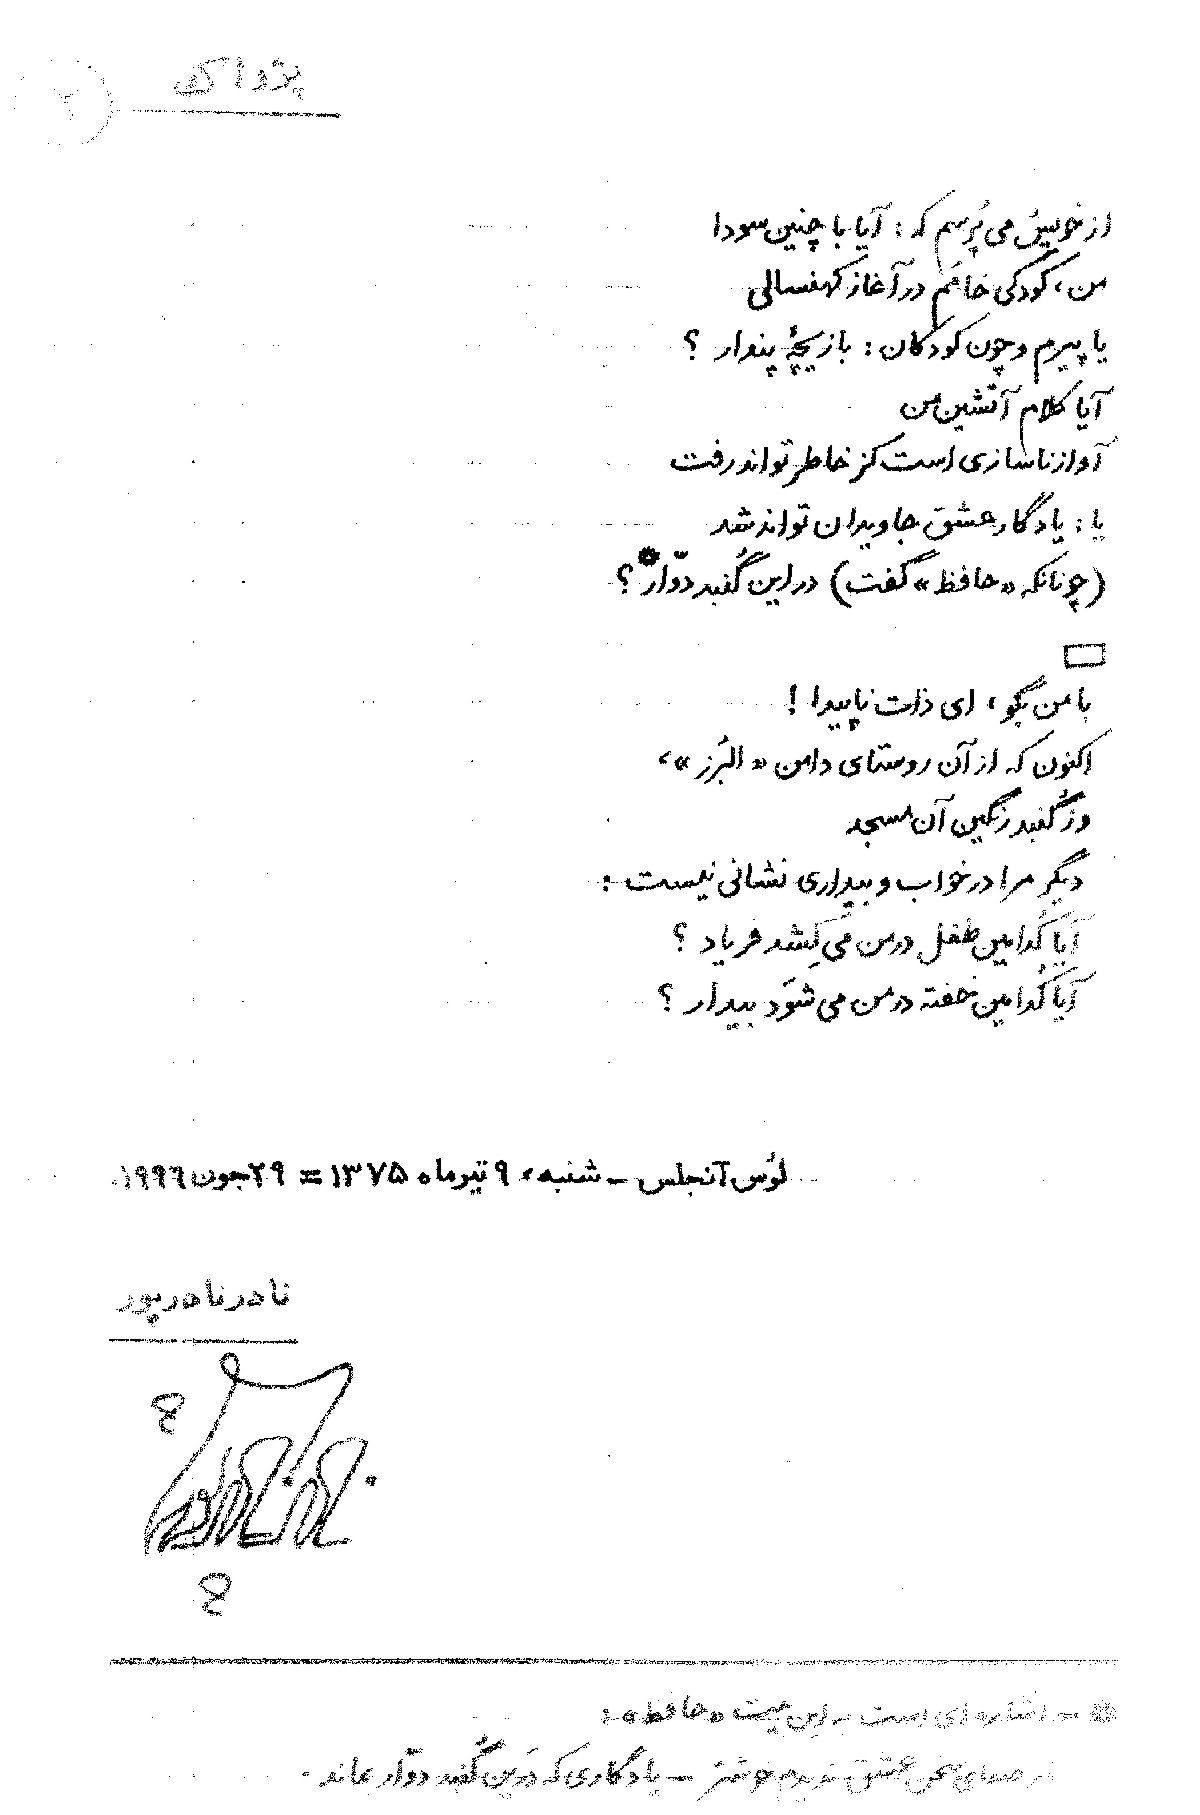 پژواک
۲
از خویش می پُرسم که : آیا با چنین سودا
من ، کودکی خامَم در آغاز کهنسالی
یا پیرم و چون کودکان : بازیچهٔ پندار ؟
آیا کلام آتشین من
آواز ناسازی است کز خاطر تواند رفت
یا : یادگار عشق جاویدان تواند شد
(چونانکه «حافظ» گفت) در این گُنبد دوّار* ؟
با من بگو ، ای ذات ناپیدا !
اکنون که از آن روستای دامن «البُرز» ،
وز گُنبد رنگین آن مسجد
دیگر مرا در خواب و بیداری نشانی نیست :
آیا کُدامین طفل در من می کِشد فریاد ؟
آیا کُدامین خفته در من می شَوَد بیدار ؟
لوُس آنجلس – شنبه ، ۹ تیرماه ۱۳۷۵ = ۲۹ جون ۱۹۹۶.
نادر نادرپور
* – اشاره ای است به این بیت «حافظ» :
از صدای سخن عشق ندیدم خوشتر – یادگاری که دَرین گُنبد دوّار بماند .